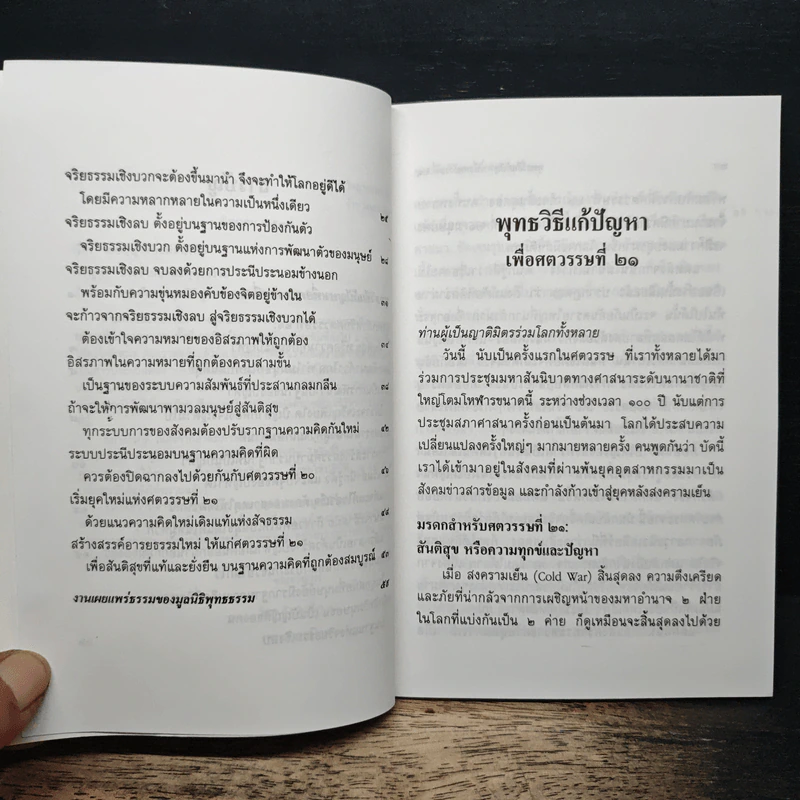 จริยธรรมเชิงบวกจะต้องขึ้นมานำ จึงจะทำให้โลกอยู่ดีได้
โดยมีความหลากหลายในความเป็นหนึ่งเดียว ๒๕
จริยธรรมเชิงลบ ตั้งอยู่บนฐานของการป้องกันตัว
จริยธรรมเชิงบวก ตั้งอยู่บนฐานแห่งการพัฒนาตัวของมนุษย์ ๒๘
จริยธรรมเชิงลบ จบลงด้วยการประนีประนอมข้างนอก
พร้อมกับความขุ่นหมองคับข้องจิตอยู่ข้างใน ๓๑
จะก้าวจากจริยธรรมเชิงลบ สู่จริยธรรมเชิงบวกได้
ต้องเข้าใจความหมายของอิสรภาพให้ถูกต้อง ๓๔
อิสรภาพในความหมายที่ถูกต้องครบสามขั้น
เป็นฐานของระบบความสัมพันธ์ที่ประสานกลมกลืน ๓๘
ถ้าจะให้การพัฒนาพามวลมนุษย์สู่สันติสุข
ทุกระบบการของสังคมต้องปรับรากฐานความคิดกันใหม่ ๔๒
ระบบประนีประนอมบนฐานความคิดที่ผิด
ควรต้องปิดฉากลงไปด้วยกันกับศตวรรษที่ ๒๐ ๔๖
เริ่มยุคใหม่แห่งศตวรรษที่ ๒๑
ด้วยแนวความคิดใหม่เดิมแท้แห่งสัจธรรม ๔๙
สร้างสรรค์อารยธรรมใหม่ ให้แก่ศตวรรษที่ ๒๑
เพื่อสันติสุขที่แท้และยั่งยืน บนฐานความคิดที่ถูกต้องสมบูรณ์ ๕๓
งานเผยแพร่ธรรมของมูลนิธิพุทธธรรม ๕๕
พุทธวิธีแก้ปัญหา
เพื่อศตวรรษที่ ๒๑
ท่านผู้เป็นญาติมิตรร่วมโลกทั้งหลาย
วันนี้ นับเป็นครั้งแรกในศตวรรษ ที่เราทั้งหลายได้มา
ร่วมการประชุมมหาสันนิบาตทางศาสนาระดับนานาชาติที่
ใหญ่โตมโหฬารขนาดนี้ ระหว่างช่วงเวลา ๑๐๐ ปี นับแต่การ
ประชุมสภาศาสนาครั้งก่อนเป็นต้นมา โลกได้ประสบความ
เปลี่ยนแปลงครั้งใหญ่ๆ มากมายหลายครั้ง คนพูดกันว่า บัดนี้
เราได้เข้ามาอยู่ในสังคมที่ผ่านพ้นยุคอุตสาหกรรมมาเป็น
สังคมข่าวสารข้อมูล และกำลังก้าวเข้าสู่ยุคหลังสงครามเย็น
มรดกสำหรับศตวรรษที่ ๒๑:
สันติสุข หรือความทุกข์และปัญหา
เมื่อ สงครามเย็น (Cold War) สิ้นสุดลง ความตึงเครียด
และภัยที่น่ากลัวจากการเผชิญหน้าของมหาอำนาจ ๒ ฝ่าย
ในโลกที่แบ่งกันเป็น ๒ ค่าย ก็ดูเหมือนจะสิ้นสุดลงไปด้วย